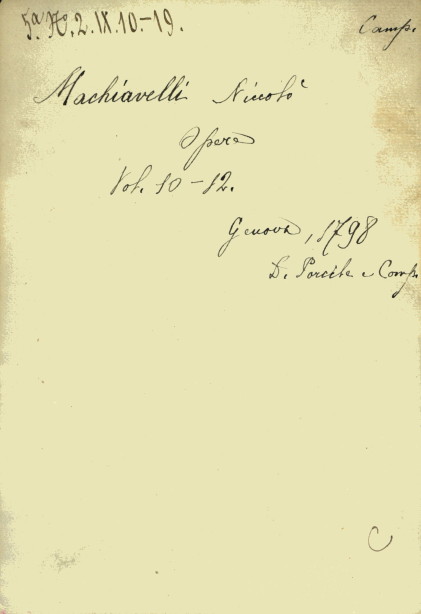 5ª N.º 2. IX. 10.-19.
Camp.
Machiavelli Niccolò
Opere
Vol. 10-12.
Genova, 1798
D. Porcile e Comp.
C